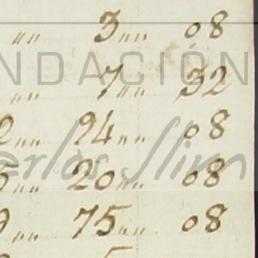 "" 3"" 08
NDACIÓN
"" 7"" 32
2"" 24"" 08
Carlos Slim
5"" 20"" 08
9"" 75"" 08